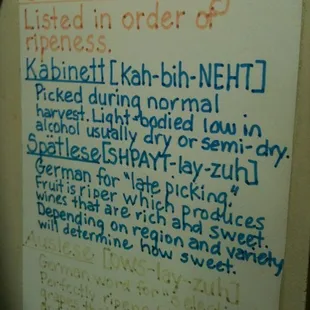 Listed in order of
ripeness.
Kabinett [kah-bih-NEHT]
Picked during normal
harvest. Light-bodied low in
alcohol usually dry or semi-dry.
Spätlese [SHPAYT-lay-zuh]
German for "late picking."
Fruit is riper which produces
wines that are rich and sweet.
Depending on region and variety
will determine how sweet.
Auslese [OWS-lay-zuh]
German word for "selection"
Perfectly ripened
grapes